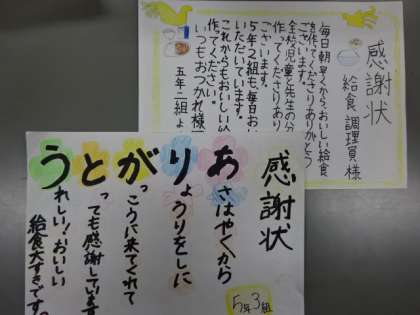 感謝状
給食調理員様
毎日朝早くから、おいしい給食
を作ってくださりありがとう
ございます。
全校児童と先生の分
作ってくださりあり
ございます。
5年2組も毎日おい
いただいています。
これからもおいしい給
作ってください。
いつもおつかれ様
五年二組よ
感謝状
あさはやくから
りょうりをしに
がっこうに来てくれて
とっても感謝しています
うれしい!おいしい
給食大すきです。
5年3組